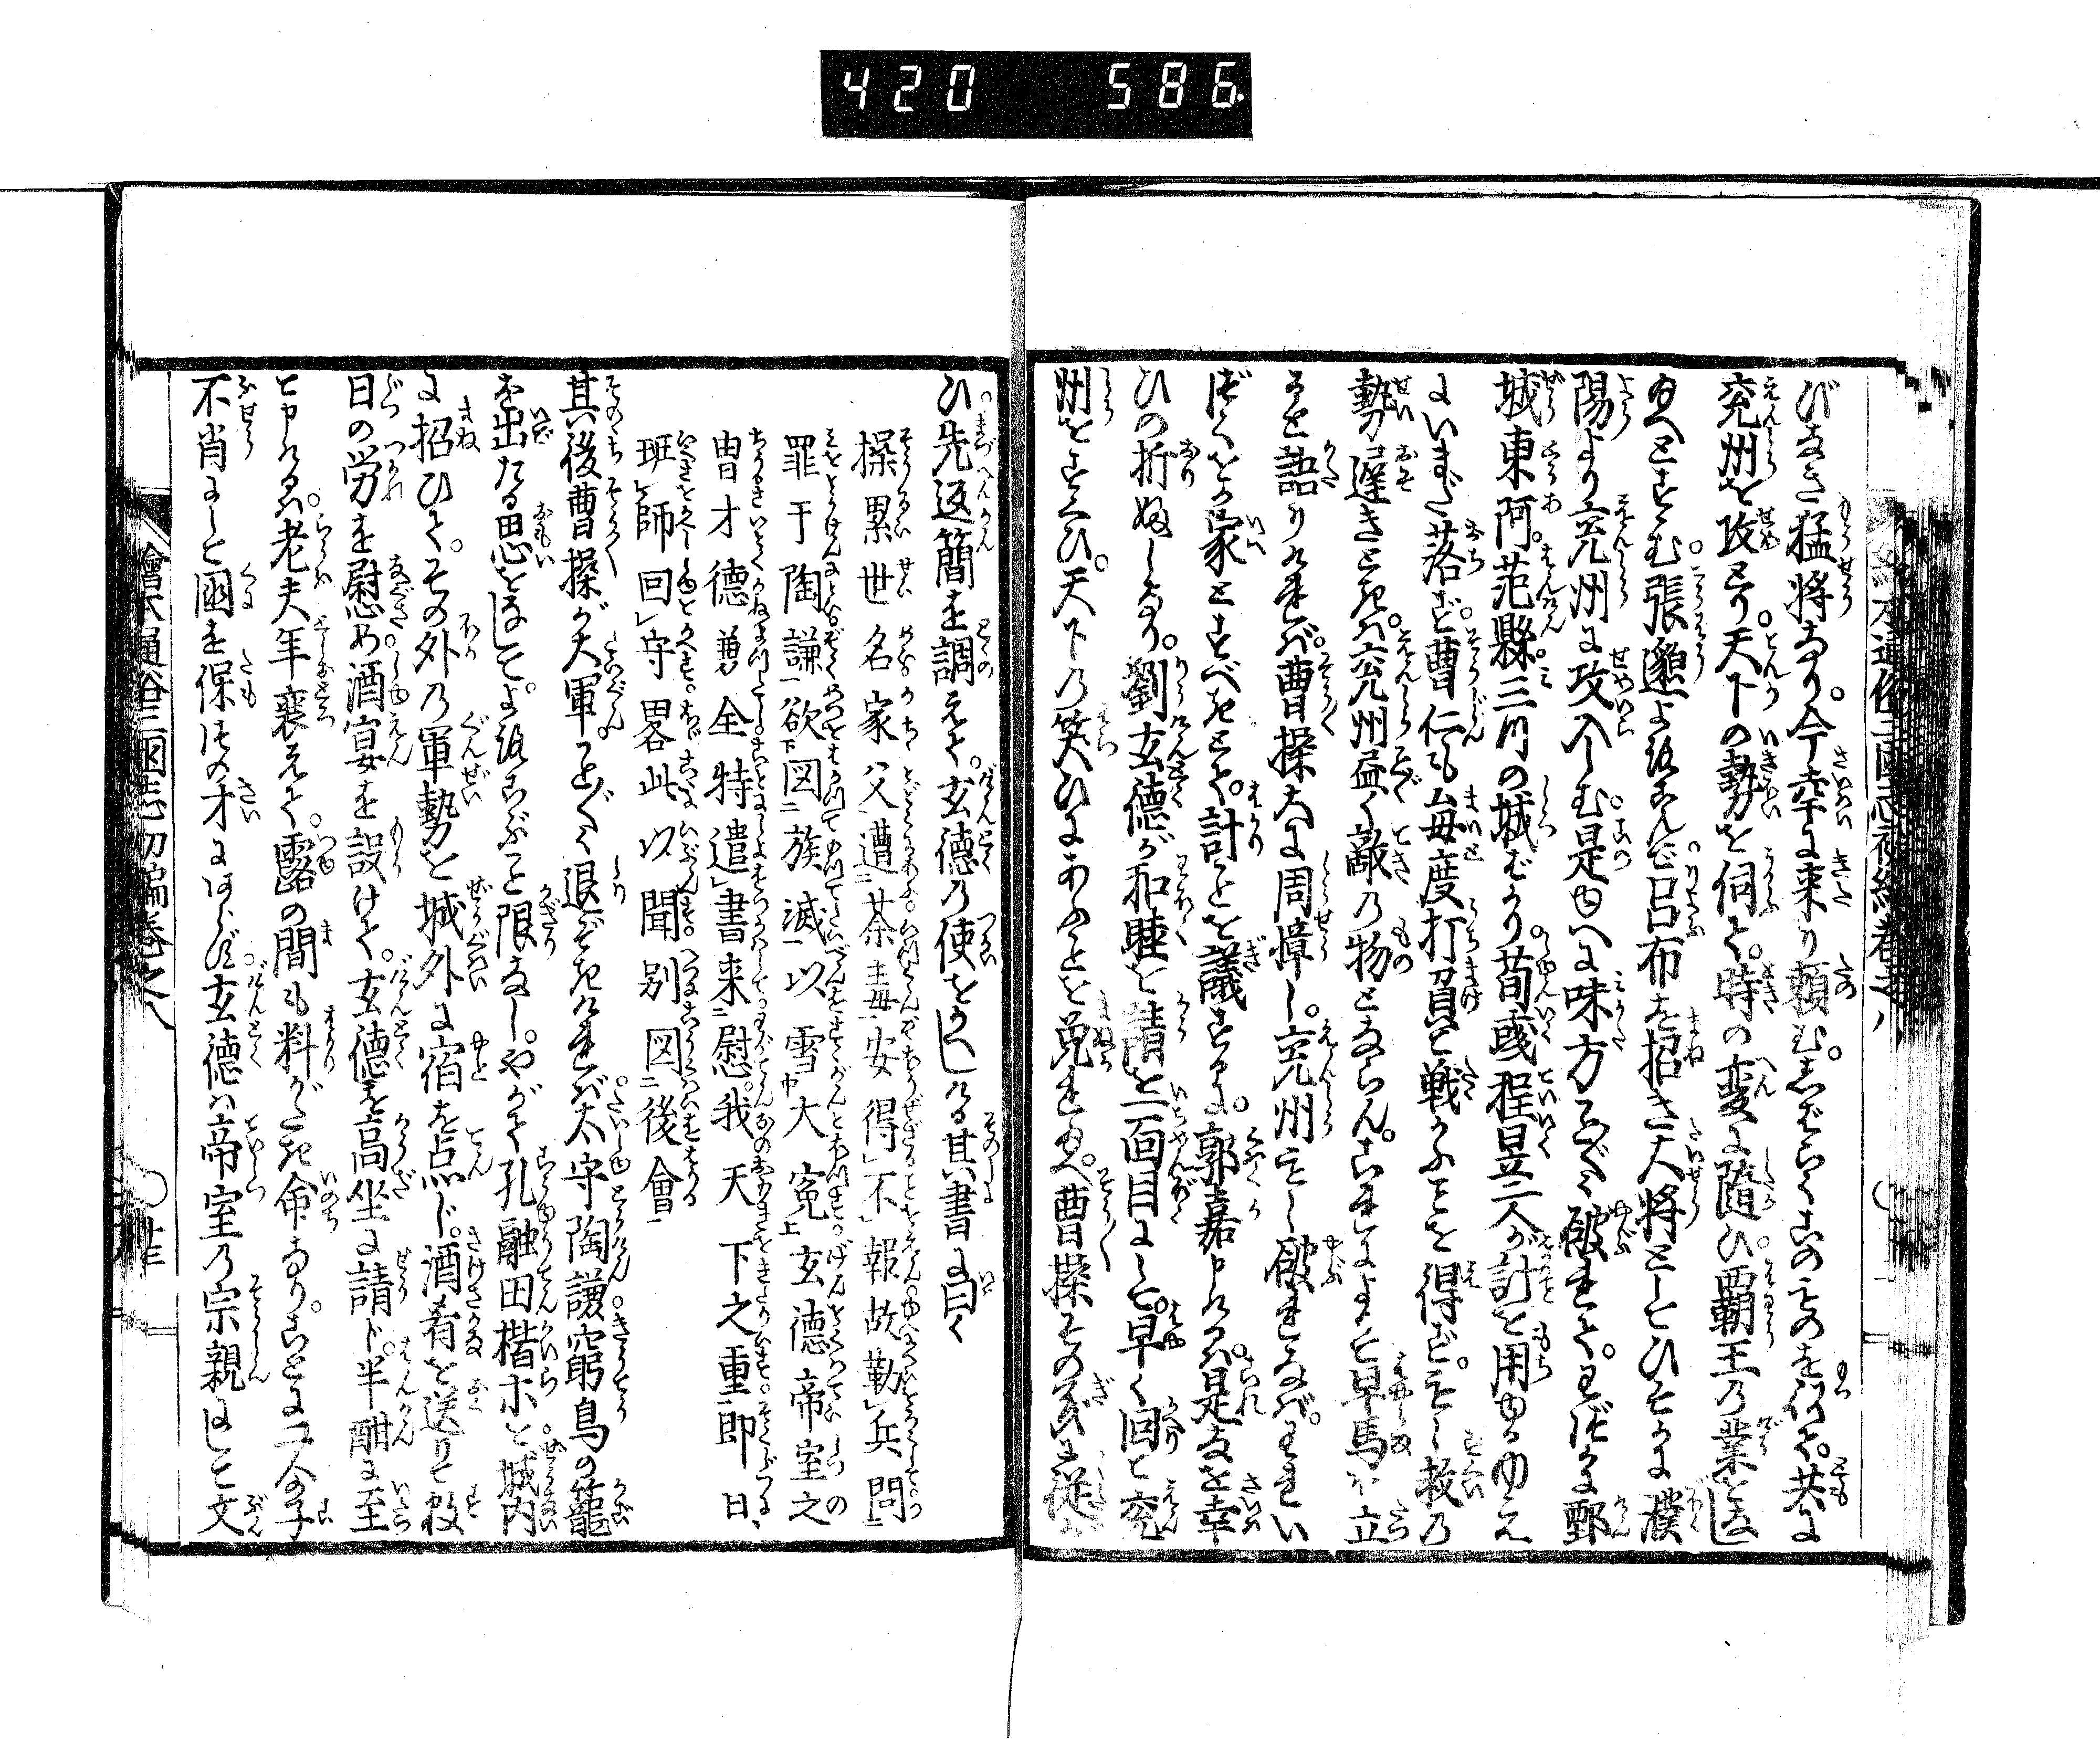 420 586
びなき猛将なり。今幸に来り頼む。しばらくこのものを得て。共に
兗州を攻とり。天下の勢を伺て。時の変に随ひ。覇王の業をなし
給へとすゝむ。張邈よろこんで呂布を招き大将としてひそかに濮
陽より兗州に攻入しむ。是ゆへに味方ことごとく破れて。わづかに鄄
城。東阿。范縣。三ツの城ばかり。荀彧程昱二人が計を用ゆるゆへ
にいまだ落ず。曹仁も毎度打負て戦ふことを得ず。もし救の
勢遅きときは兗州盡く敵の物とならん。これによりて早馬に立
ると語りければ。曹操大に周章し。兗州もし破れなば。われい
づくを家とすべきとて。計ことを議するに。郭嘉申けるは。是なを幸
ひの折ふしなり。劉玄徳が和睦を請を一面目にして。早く回て兗
州をすくひ。天下の笑ひにあふことを免れ給へ。曹操その義に従
ひ。先返簡を調へて。玄徳の使をかへしける其書に曰く
操累世名家父遭荼毒安得不報故勒兵問
罪于陶謙欲図族滅以雪大寃玄徳帝室之
冑才徳兼全特遣書来慰我天下之重即日
班師回守畧此以聞別図後會
其後曹操が大軍。ことごとく退ぞきければ。太守陶謙。窮鳥の籠
を出たる思をなして。よろこぶこと限なし。やがて孔融田楷ホを城内
に招ひて。その外の軍勢を城外に宿を点じ。酒肴を送りて数
日の労を慰め。酒宴を設けて。玄徳を高坐に請ド。半酣に至
て申けるは。老夫年衰へて。露の間も料がたき命なり。ことに二人の子
不肖にして國を保つの才にあらず。玄徳は帝室の宗親にして文
繪本通俗三國志初編巻之八
廿三